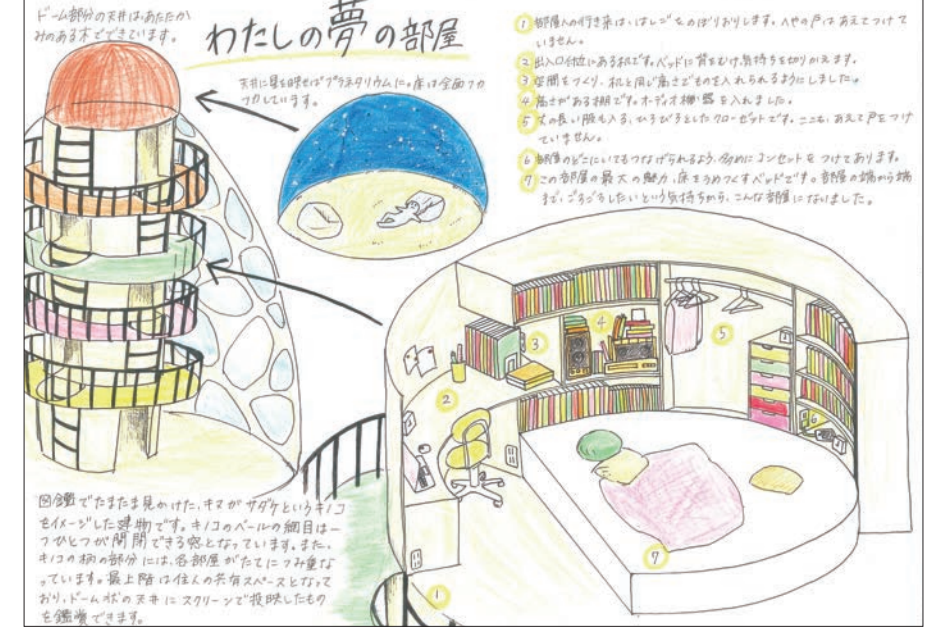 わたしの夢の部屋
ドーム部分の天井は、あたたか
みのある木でできています。
天井に星を映せばプラネタリウムに。床は全面フカ
フカしています。
1 部屋への行き来は、はしごをのぼりおりします。へやの戸はあえてつけて
いません。
2 出入口付近にある机です。ベッドに背をむけ、気持ちを切りかえます。
3 空間をつくり、机と同じ高さでものを入れられるようにしました。
4 高さがある棚です。オーディオ機器を入れました。
5 丈の長い服も入る、ひろびろとしたクローゼットです。ここも、あえて戸をつけ
ていません。
6 部屋のどこにいてもつなげられるよう、多めにコンセットをつけてあります。
7 この部屋の最大の魅力、床をうめつくすベッドです。部屋の端から端
まで、ごろごろしたいという気持ちから、こんな部屋になりました。
3
4
5
2
6
7
1
図鑑でたまたま見かけた、キヌガサダケというキノコ
をイメージした建物です。キノコのベールの網目は一
つひとつが開閉できる窓となっています。また、
キノコの柄の部分には、各部屋がたてにつみ重な
っています。最上階は住人の共有スペースとなって
おり、ドーム状の天井にスクリーンで投映したもの
を鑑賞できます。